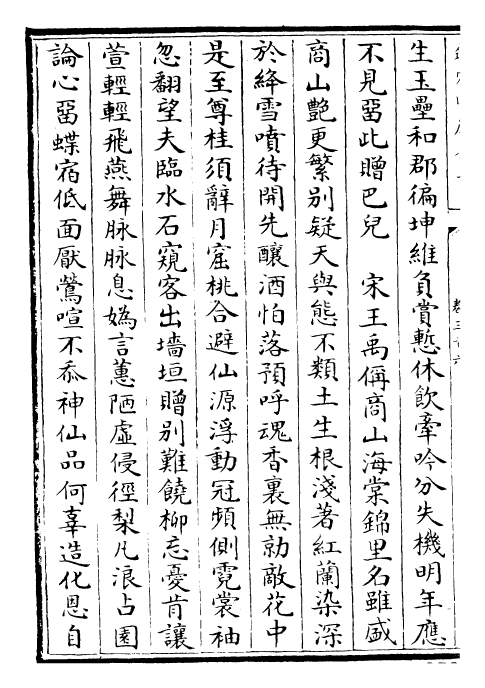 生玉壘和郡徧坤維負賞慙休飲牽吟分失機明年應
不見畱此贈巴兒　宋王禹偁商山海棠錦里名雖盛
商山艷更繁别疑天與態不類土生根淺著紅蘭染深
於絳雪噴待開先釀酒怕落預呼魂香裏無勍敵花中
是至尊桂須辭月窟桃合避仙源浮動冠頻側霓裳袖
忽翻望夫臨水石窺客出墻垣贈别難饒柳忘憂肯讓
萱輕輕飛燕舞脉脉息媯言蕙陋虛侵徑梨凡浪占園
論心畱蝶宿低面厭鶯喧不忝神仙品何辜造化恩自
卷三十六